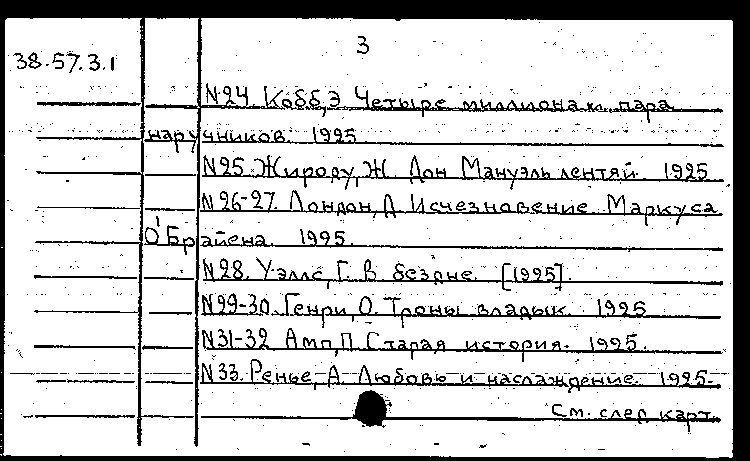 3
38.57.3.1
N24. Кобб,Э Четыре миллиона и пара
наручников. 1925
N25. Жироду, Ж. Дон Мануэль лентяй. 1925
N26-27. Лондон, Д. Исчезновение Маркуса
О'Брайена. 1925.
N28. Уэллс, Г. В бездне. [1925].
N29-30. Генри, О. Троны владык. 1925
N31-32 Амп, П Старая история. 1925.
N33. Ренье, А. Любовь и наслаждение. 1925.
См. след карт.